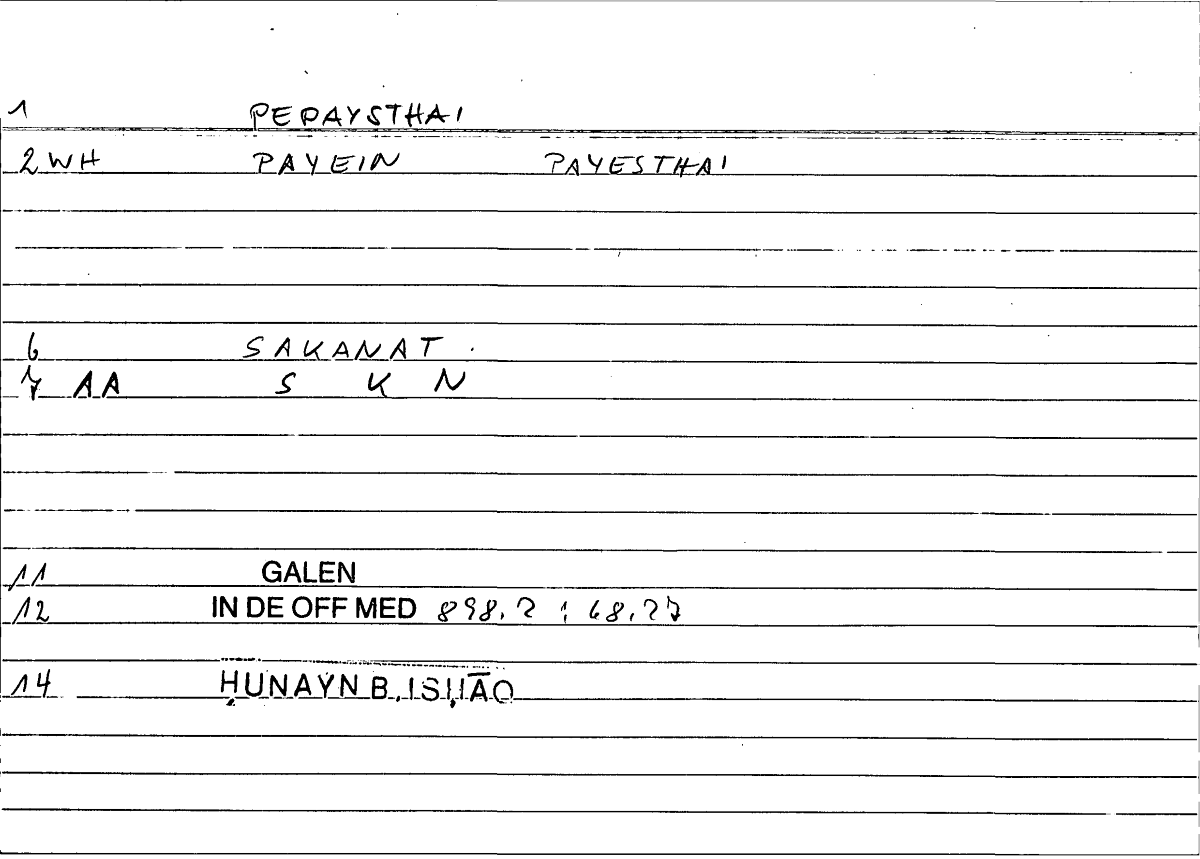 1 PEPAYSTHAI
2 WH PAYEIN PAYESTHAI
6 SAKANAT
7 AA S K N
11 GALEN
12 IN DE OFF MED 898.2 ; 68.27
14 ḤUNAYN B. ISḤĀQ